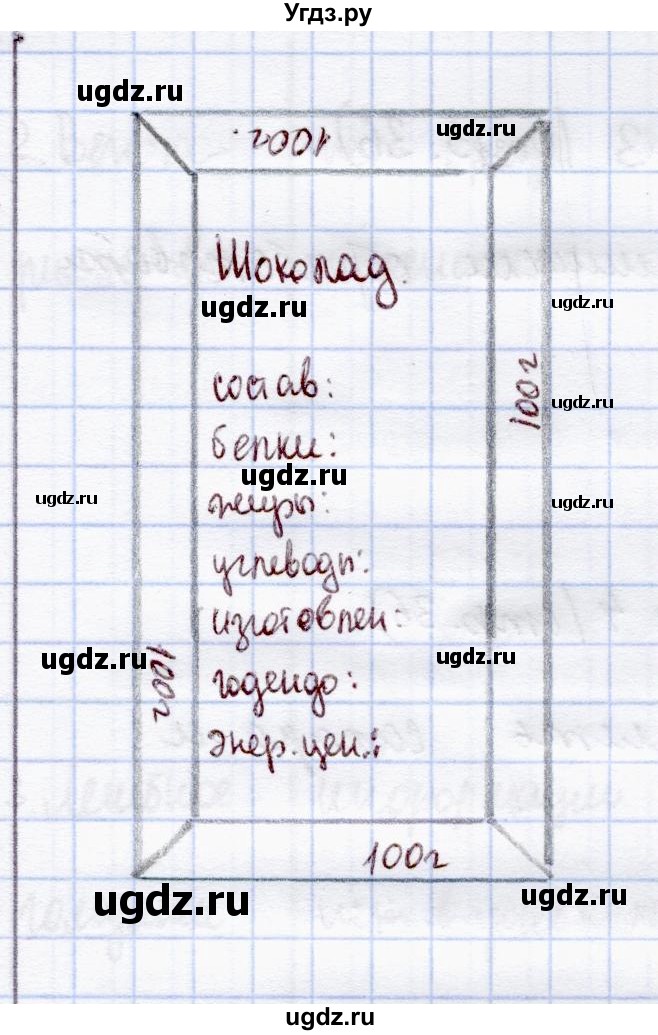 Угдз.ру
ugdz.ru
ugdz.ru
100г.
Шоколад.
ugdz.ru
ugdz.ru
состав:
100 г
ugdz.ru
белки:
ugdz.ru
жиры:
ugdz.ru
ugdz.ru
углеводы:
изготовлен:
ugdz.ru
100г
ugdz.ru
годендо:
энер. цен.:
100г
ugdz.ru
ugdz.ru
ugdz.ru